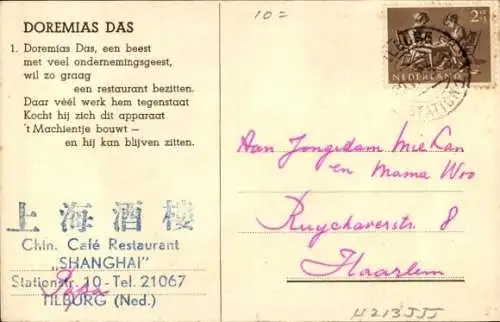 DOREMIAS DAS
1. Doremias Das, een beest
met veel ondernemingsgeest,
wil zo graag
een restaurant bezitten.
Daar véél werk hem tegenstaat
Kocht hij zich dit apparaat
't Machientje bouwt —
en hij kan blijven zitten.
上海酒樓
Chin. Café Restaurant
„SHANGHAI"
Stationstr. 10 - Tel. 21067
TILBURG (Ned.)
Papa
10=
NEDERLAND
STATION
Aan Jongedam Mie Lan
en Mama Woo
Ruychaverstr. 8
Haarlem